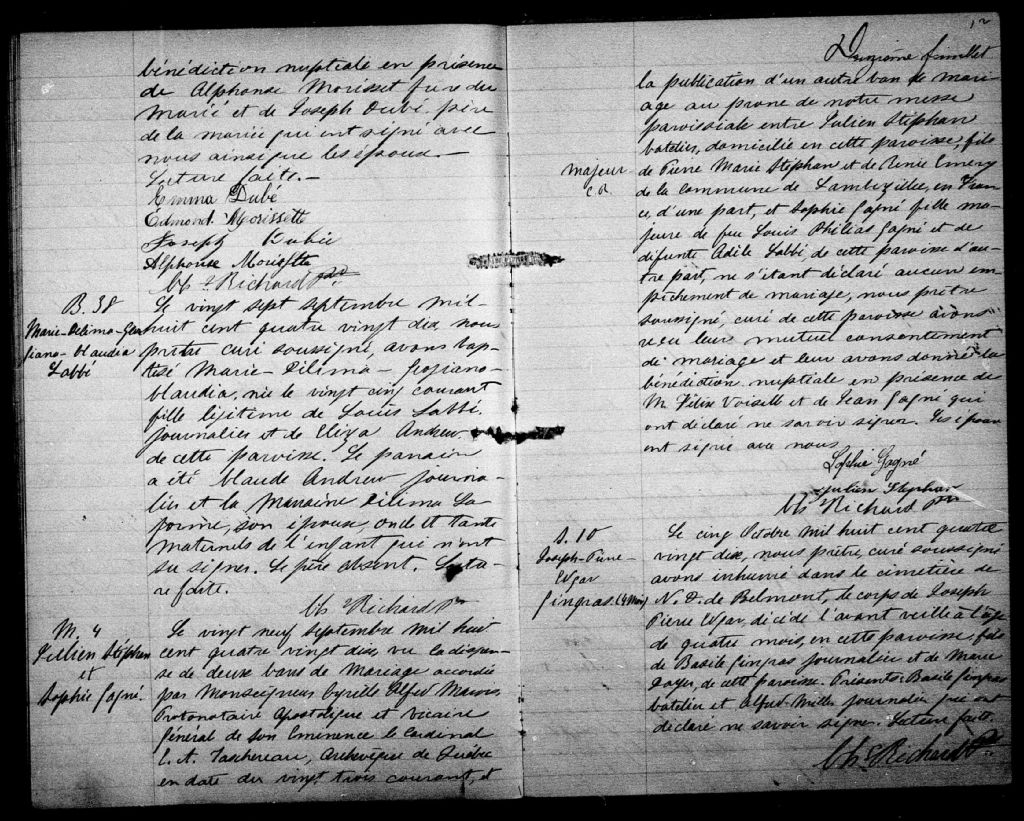 bénédiction nuptiale en présence
de Alphonse Morisset frère du
Marié et de Joseph Dubé, père
de la mariée qui ont signé avec
nous ainsi que les époux.—
Lecture faite.—
Emma Dubé
Edmond Morissette
Joseph Dubé
Alphonse Morisette
Chs Richard Ptre
B. 38
Marie-Delima-
Claudia
Labbé
Le vingt sept septembre mil-
huit cent quatre vingt dix, nous
prêtre curé soussigné, avons bap-
tisé Marie-Delima-
Claudia, née le vingt cinq courant
fille légitime de Louis Labbé,
journalier et de Eliza Andrew
de cette paroisse. Le parrain
a été Claude Andrew journa-
lier et la Marraine Delima La-
son épouse, oncle et tante
maternels de l'enfant qui n'ont
su signer. Le père absent. Lectu-
re faite.
Chs Richard Ptre
M. 4
Julien Stéphan
et
Sophie Gagné.
Le vingt neuf septembre mil huit
cent quatre vingt dix, vu la dispen-
se de deux bans de Mariage accordée
par Monseigneur Cyrille Alfred Marois
Protonotaire Apostolique et Vicaire
Général de Son Eminence le Cardinal
E. A. Taschereau, Archevêque de Québec
en date du vingt trois courant, et
12
feuillet
la publication d'un autre ban de mari-
age au prône de notre messe
paroissiale entre Julien Stéphan
batelier, domicilié en cette paroisse, fils
majeur
C.R
de Pierre Marie Stéphan et de Renée Emery
de la Commune de Lambezellec, en Fran-
ce, d'une part, et Sophie Gagné fille ma-
jeure de feu Louis Philias Gagné et de
défunte Adèle Labbé, de cette paroisse d'au-
tre part, ne s'étant déclaré aucun em-
pêchement de mariage, nous prêtre
soussigné, curé de cette paroisse avons
reçu leur mutuel consentement
de mariage et leur avons donné la
bénédiction nuptiale en présence de
M. Félix Voiselle et de Jean Gagné qui
ont déclaré ne savoir signer. Les époux
ont signé avec nous
Sophie Gagné
Julien Stephan
Chs Richard Ptre
S. 10
Joseph-Pierre
Edgar
Gingras (4 Mois)
Le cinq Octobre mil huit cent quatre
vingt dix, nous prêtre, curé soussigné
avons inhumé dans le cimetière de
N. D. de Belmont, le corps de Joseph
Pierre Edgar, décédé l'avant veille à l'âge
de quatre mois, en cette paroisse, fils
de Basile Gingras journalier et de Marie
de cette paroisse. Présents: Basile Gingras
batelier et Alfred Miller journalier qui ont
déclaré ne savoir signer. Lecture faite.
Chs Richard Ptre